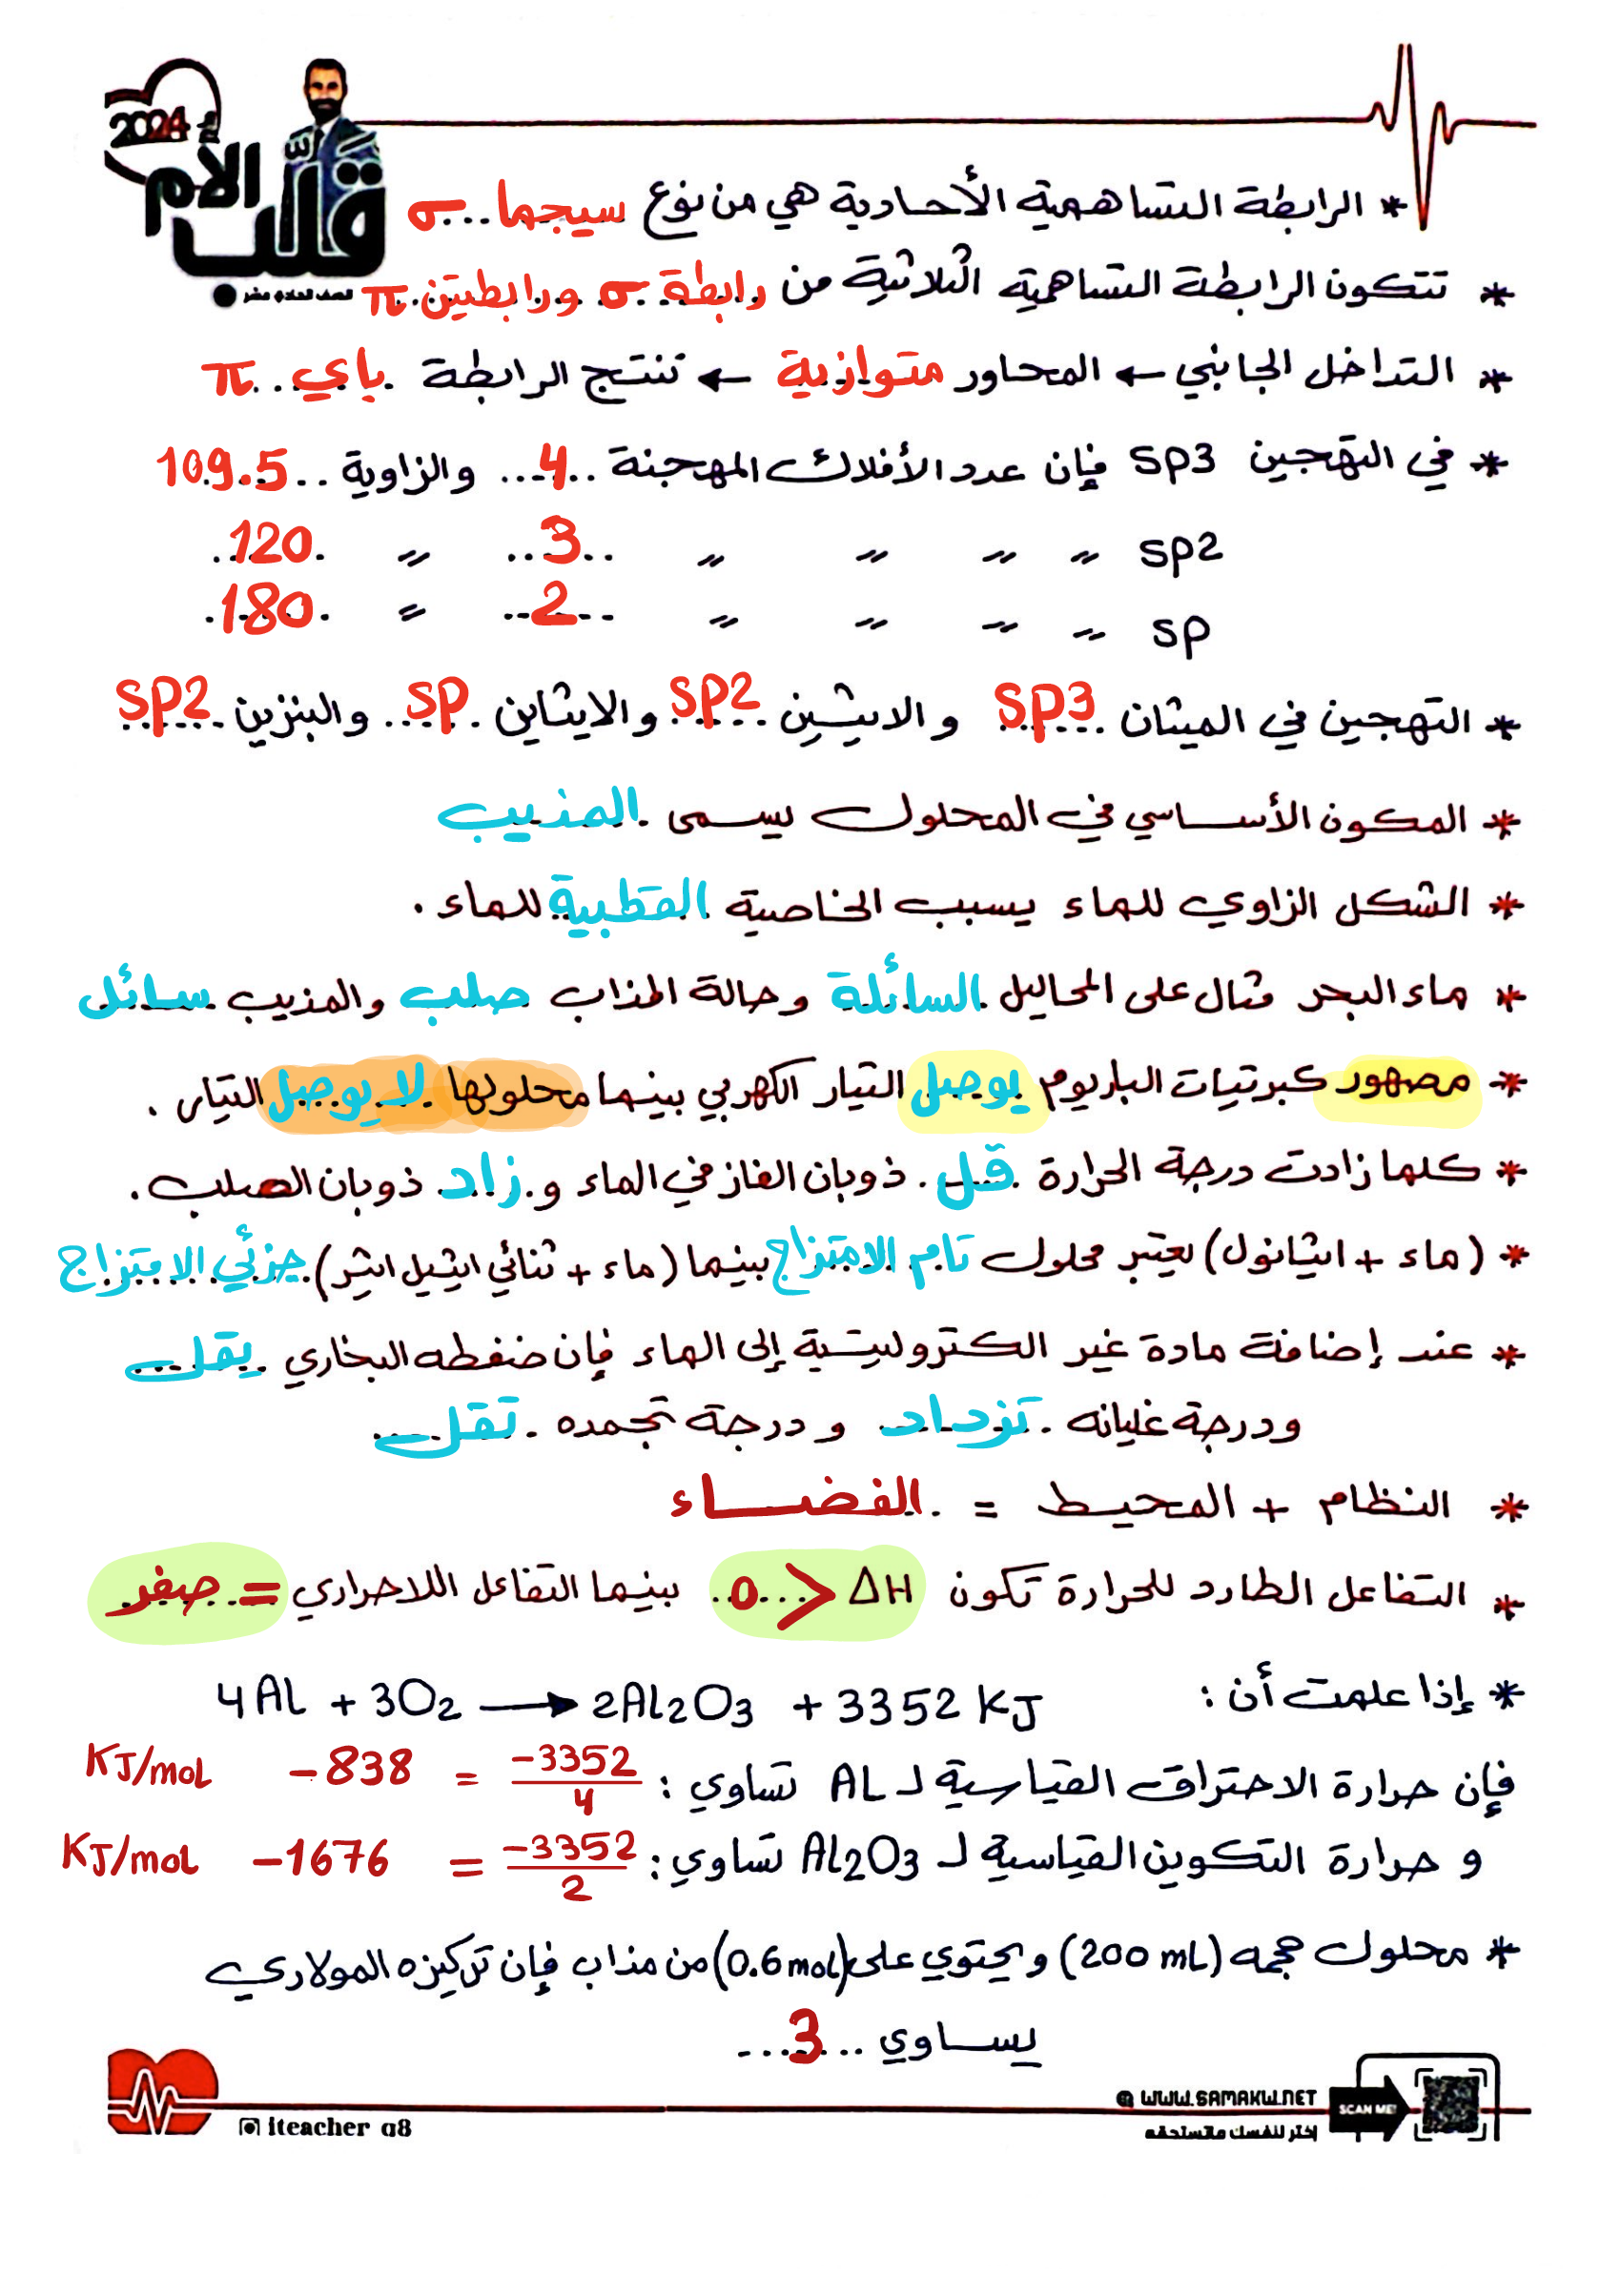 2024
قلب الأم
الصف الحادي عشر
* الرابطة التساهمية الأحادية هي من نوع سيجما σ
* تتكون الرابطة التساهمية الثلاثية من رابطة σ ورابطتين π
* التداخل الجانبي ← المحاور متوازية ← تنتج الرابطة باي π
* في التهجين sp3 فإن عدد الأفلاك المهجنة 4 والزاوية 109.5
sp2 〃 〃 〃 〃 3 〃 120
sp 〃 〃 〃 〃 2 〃 180
* التهجين في الميثان sp3 والايثين sp2 والايثاين sp والبنزين sp2
* المكون الأساسي في المحلول يسمى المذيب
* الشكل الزاوي للماء يسبب الخاصية القطبية للماء.
* ماء البحر مثال على المحاليل السائلة وحالة المذاب صلب والمذيب سائل
* مصهور كبرتيات الباريوم يوصل التيار الكهربي بينما محلولها لا يوصل التيار.
* كلما زادت درجة الحرارة قل ذوبان الغاز في الماء و زاد ذوبان الصلب.
* (ماء + ايثانول) يعتبر محلول تام الامتزاج بينما (ماء + ثنائي ايثيل ايثر) جزئي الامتزاج
* عند إضافة مادة غير الكتروليتية إلى الماء فإن ضغطه البخاري يقل
ودرجة غليانه تزداد و درجة تجمده تقل
* النظام + المحيط = الفضاء
* التفاعل الطارد للحرارة تكون ΔH < 0 بينما التفاعل اللاحراري = صفر
* إذا علمت أن : 4Al + 3O2 → 2Al2O3 + 3352 KJ
فإن حرارة الاحتراق القياسية لـ AL تساوي : -3352/4 = -838 KJ/moL
و حرارة التكوين القياسية لـ Al2O3 تساوي : -3352/2 = -1676 KJ/moL
* محلول حجمه (200 mL) ويحتوي على (0.6 moL) من مذاب فإن تركيزه المولاري
يساوي 3
iteacher_q8
WWW.SAMAKW.NET
إختر لنفسك ماتستحقه
SCAN ME!